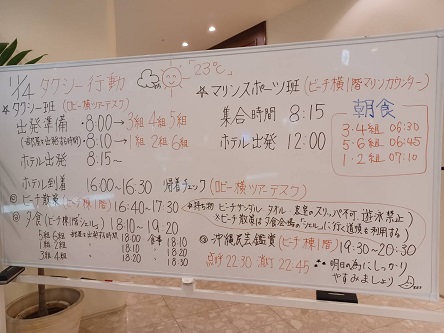 11/4 タクシー行動 「23℃」
☆タクシー班 (ロビー横ツアーデスク)
出発準備 ・8:00→3組 4組 5組
(お部屋を出発する時間) ・8:10→1組 2組 6組
ホテル出発 8:15〜
☆マリンスポーツ班 (ビーチ横1階マリンカウンター)
集合時間 8:15
ホテル出発 12:00
朝食
3・4組 06:30
5・6組 06:45
1・2組 07:10
ホテル到着 16:00〜16:30 帰着チェック (ロビー横ツアーデスク)
① ビーチ散策 (ビーチ棟1階) 16:40〜17:30
☆持ち物 ビーチサンダル タオル
客室のスリッパ不可、遊泳禁止)
② 夕食 (ビーチ棟1階「シェル」) 18:10〜19:20
5組 6組 お部屋を出発する時間 18:00 食事 18:10
1組 2組 〃 18:10 〃 18:20
3組 4組 〃 18:20 〃 18:30
③ 沖縄民芸鑑賞 (ビーチ棟1階) 19:30〜20:30
点呼 22:30 消灯 22:45
明日の為にしっかり
やすみましょう